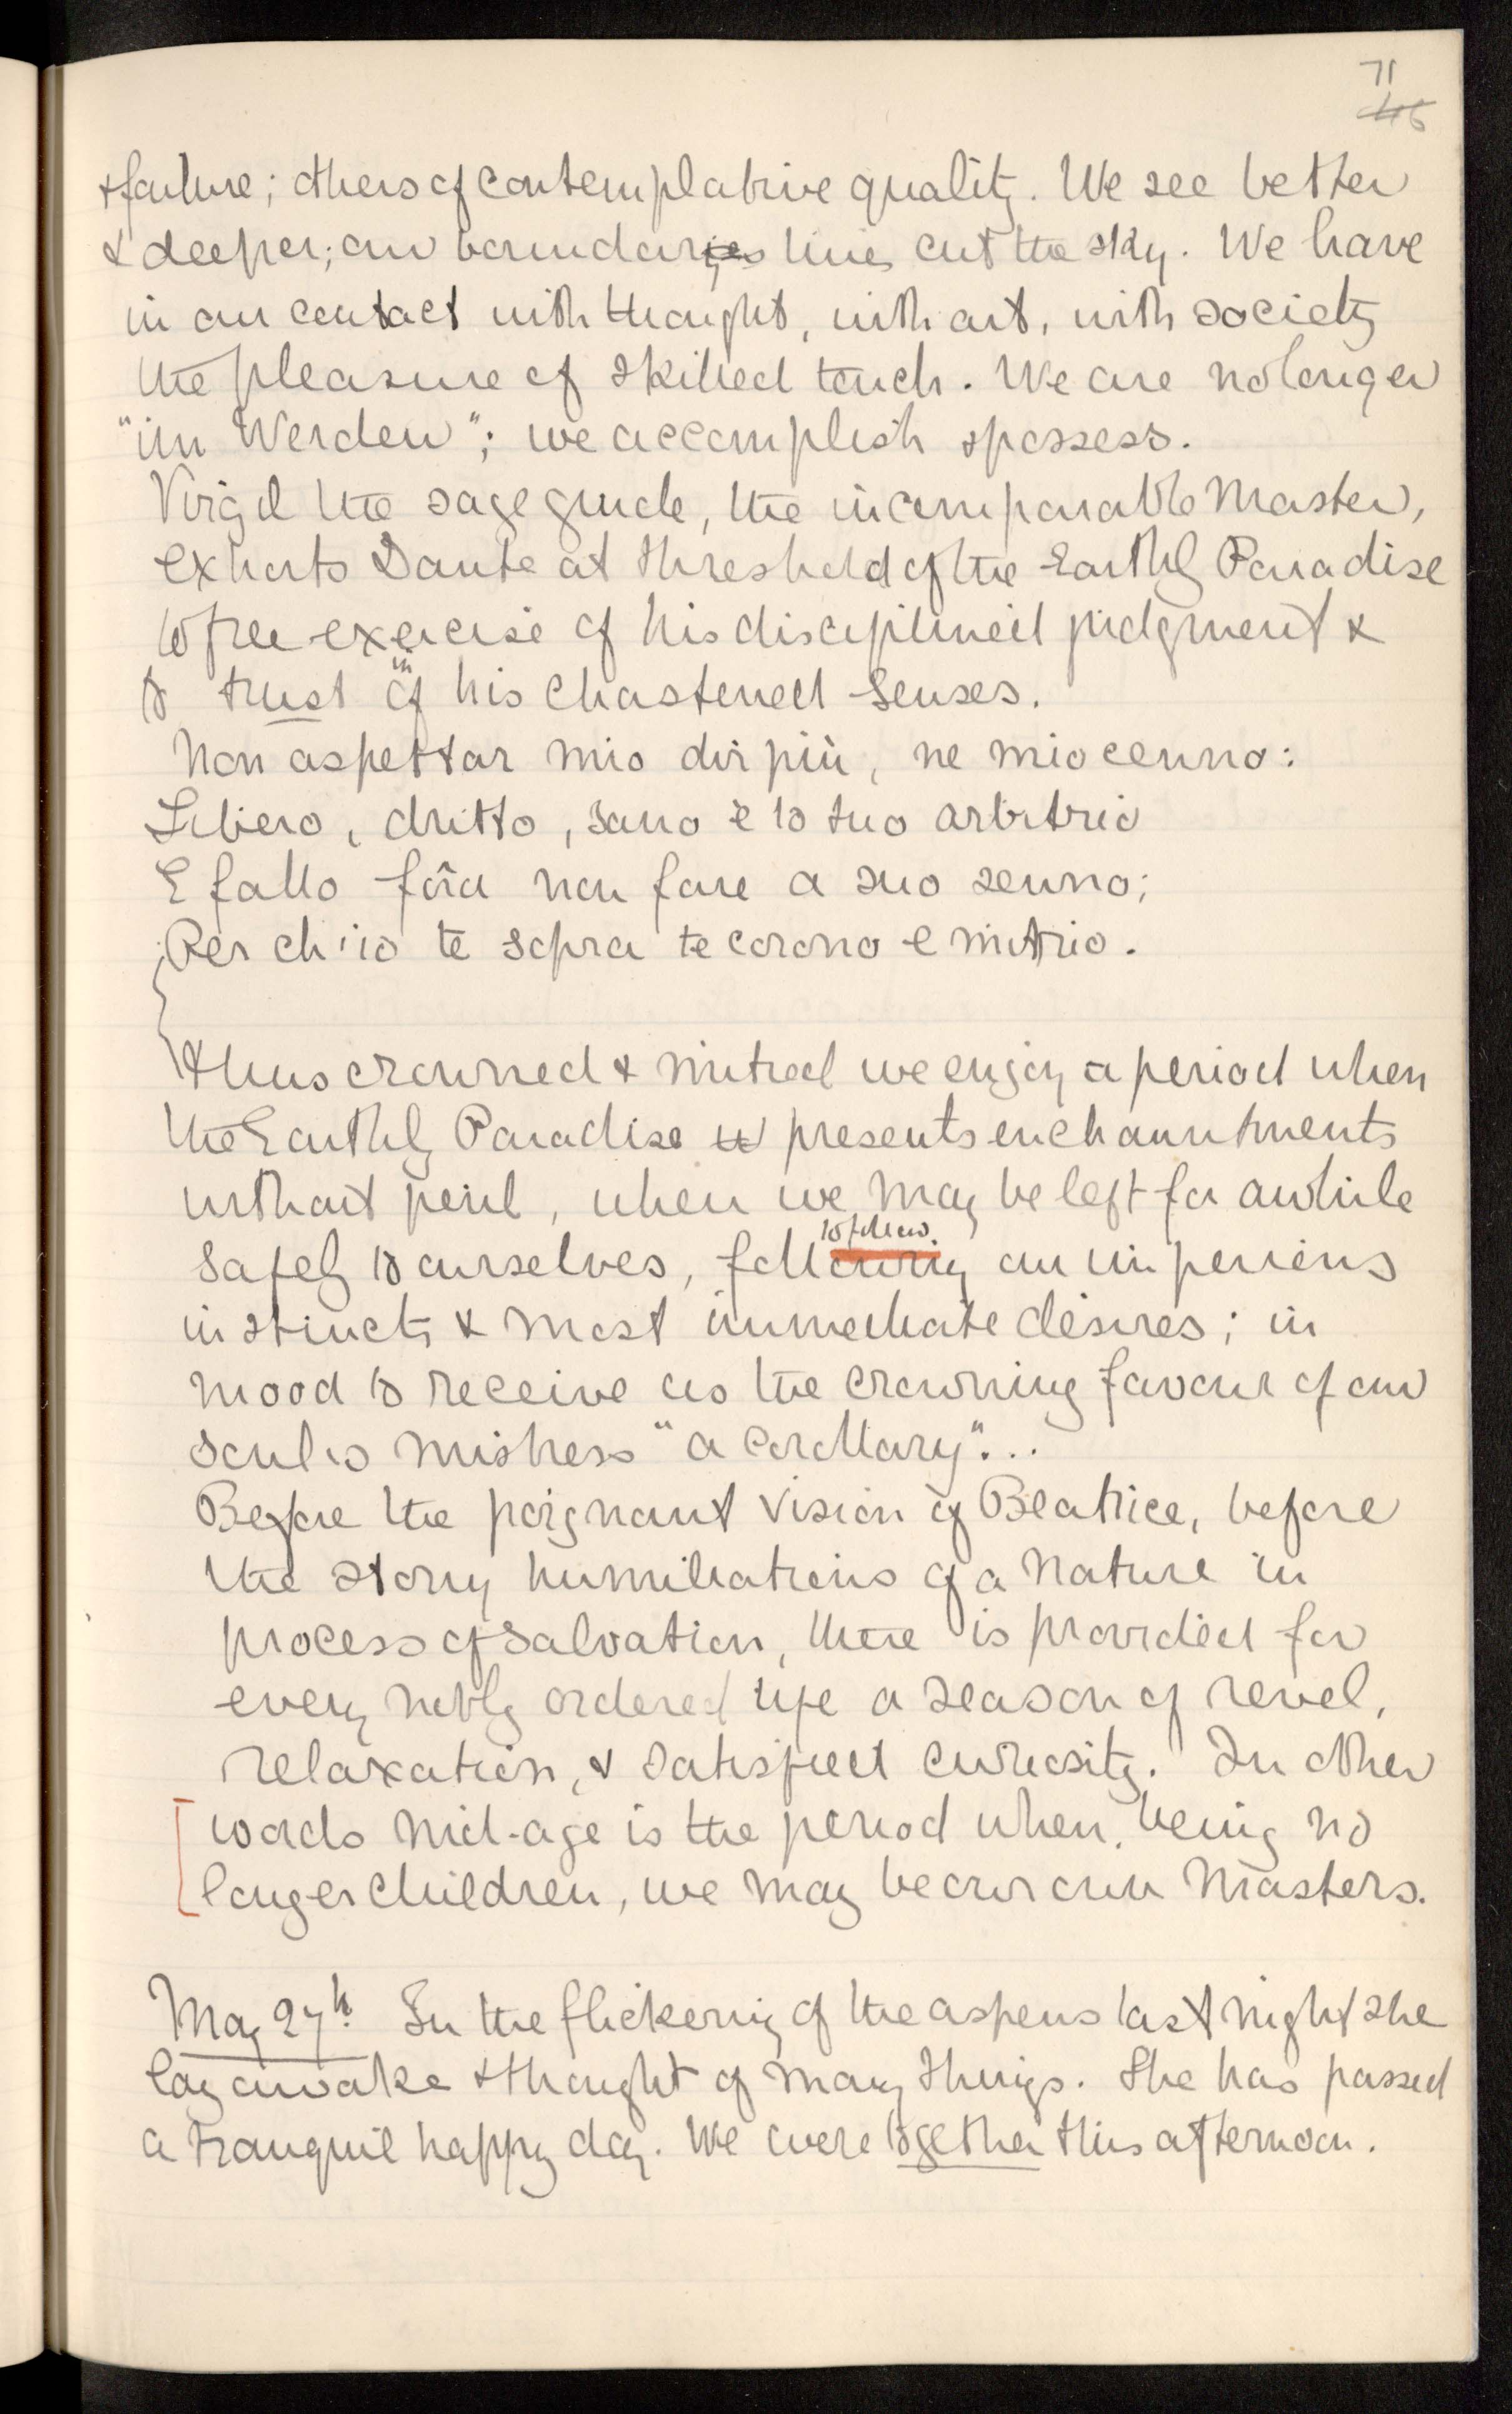 71
46
& failure; others of contemplative quality. We see better
& deeper; our boundary lines cut the sky. We have
in our contact with thought, with art, with society
the pleasure of skilled touch. We are no longer
"im Werden"; we accomplish & possess.
Virgil the sage guide, the incomparable Master,
exhorts Dante at threshold of the Earthly Paradise
to free exercise of his disciplined judgment &
to trust in of his chastened senses.
Non aspettar mio dir più, ne mio cenno:
Libero, dritto, sano è lo tuo arbitrio
E fallo fôra non fare a suo senno;
Per ch'io te sopra te corono e mitrio.
thus crowned & mitred we enjoy a period when
the Earthly Paradise presents enchauntments
without peril, when we may be left for awhile
to follow
safely to ourselves, following our imperious
instincts & most immediate desires; in
mood to receive as the crowning favour of our
soul's mistress "a corollary"...
Before the poignant vision of Beatrice, before
the stony humiliations of a nature in
process of salvation, there is provided for
every nobly ordered life a season of revel,
relaxation, & satisfied curiosity. In other
words mid-age is the period when, being no
longer children, we may be our own Masters.
May 27th. In the flickering of the aspens last night she
lay awake & thought of many things. She has passed
a tranquil happy day. We were together this afternoon.